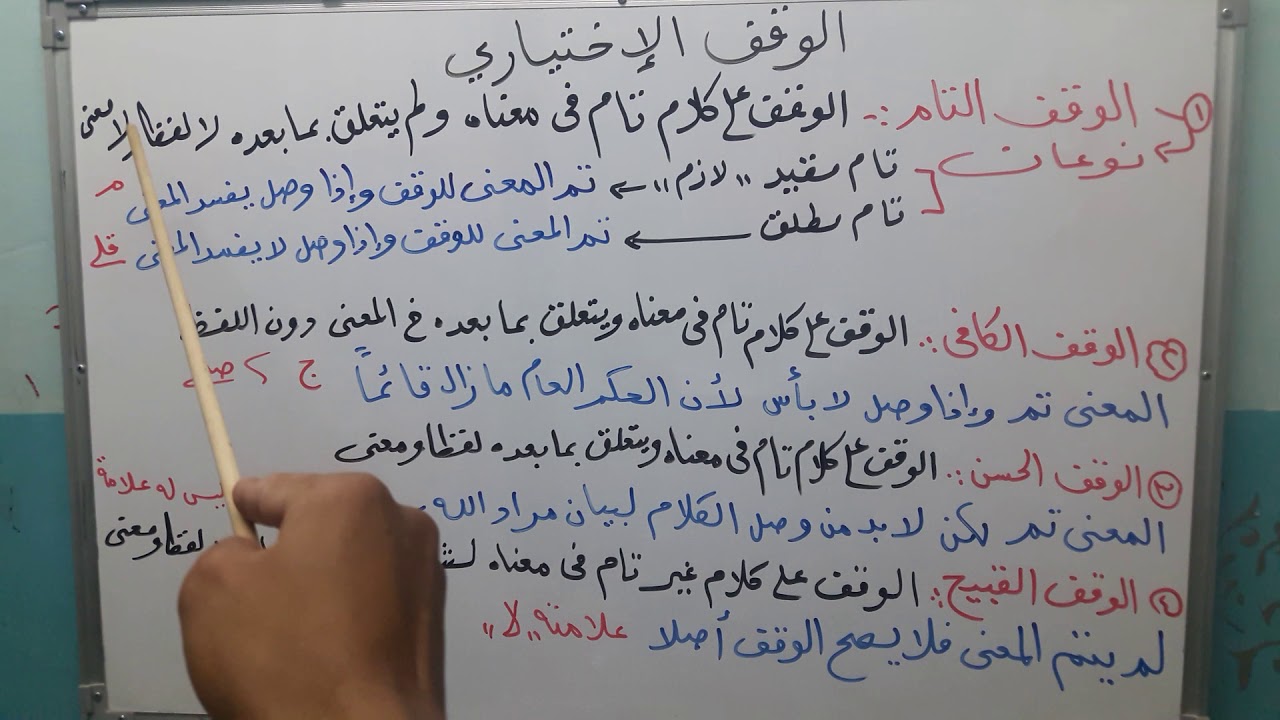 الوقف الإختياري
① الوقف التام :- الوقف على كلام تام فى معناه ولم يتعلق بما بعده لا لفظا ولا معنى
نوعان
تام مقيد "لازم" ← تم المعنى للوقف وإذا وصل يفسد المعنى م
تام مطلق ← تم المعنى للوقف وإذا وصل لا يفسد المعنى قلے
② الوقف الكافى :. الوقف على كلام تام فى معناه ويتعلق بما بعده فى المعنى دون اللفظ
المعنى تم وإذا وصل لا بأس لأن الحكم العام مازال قائماً ج > صلے
③ الوقف الحسن :. الوقف على كلام تام فى معناه ويتعلق بما بعده لفظا ومعنى
المعنى تم لكن لابد من وصل الكلام لبيان مراد الله ليس له علامة
④ الوقف القبيح :. الوقف على كلام غير تام فى معناه لفظا ومعنى
لم يتم المعنى فلا يصح الوقف أصلا علامته "لا"